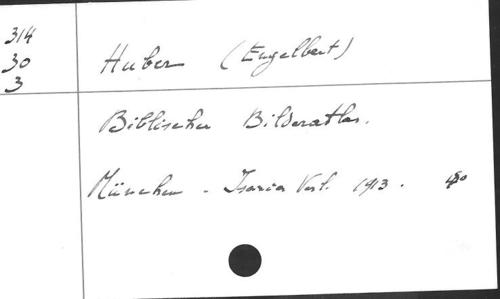 314
30
3
Huber (Engelbert)
Biblischer Bilderatlas.
München - Isaria Verl. 1913.